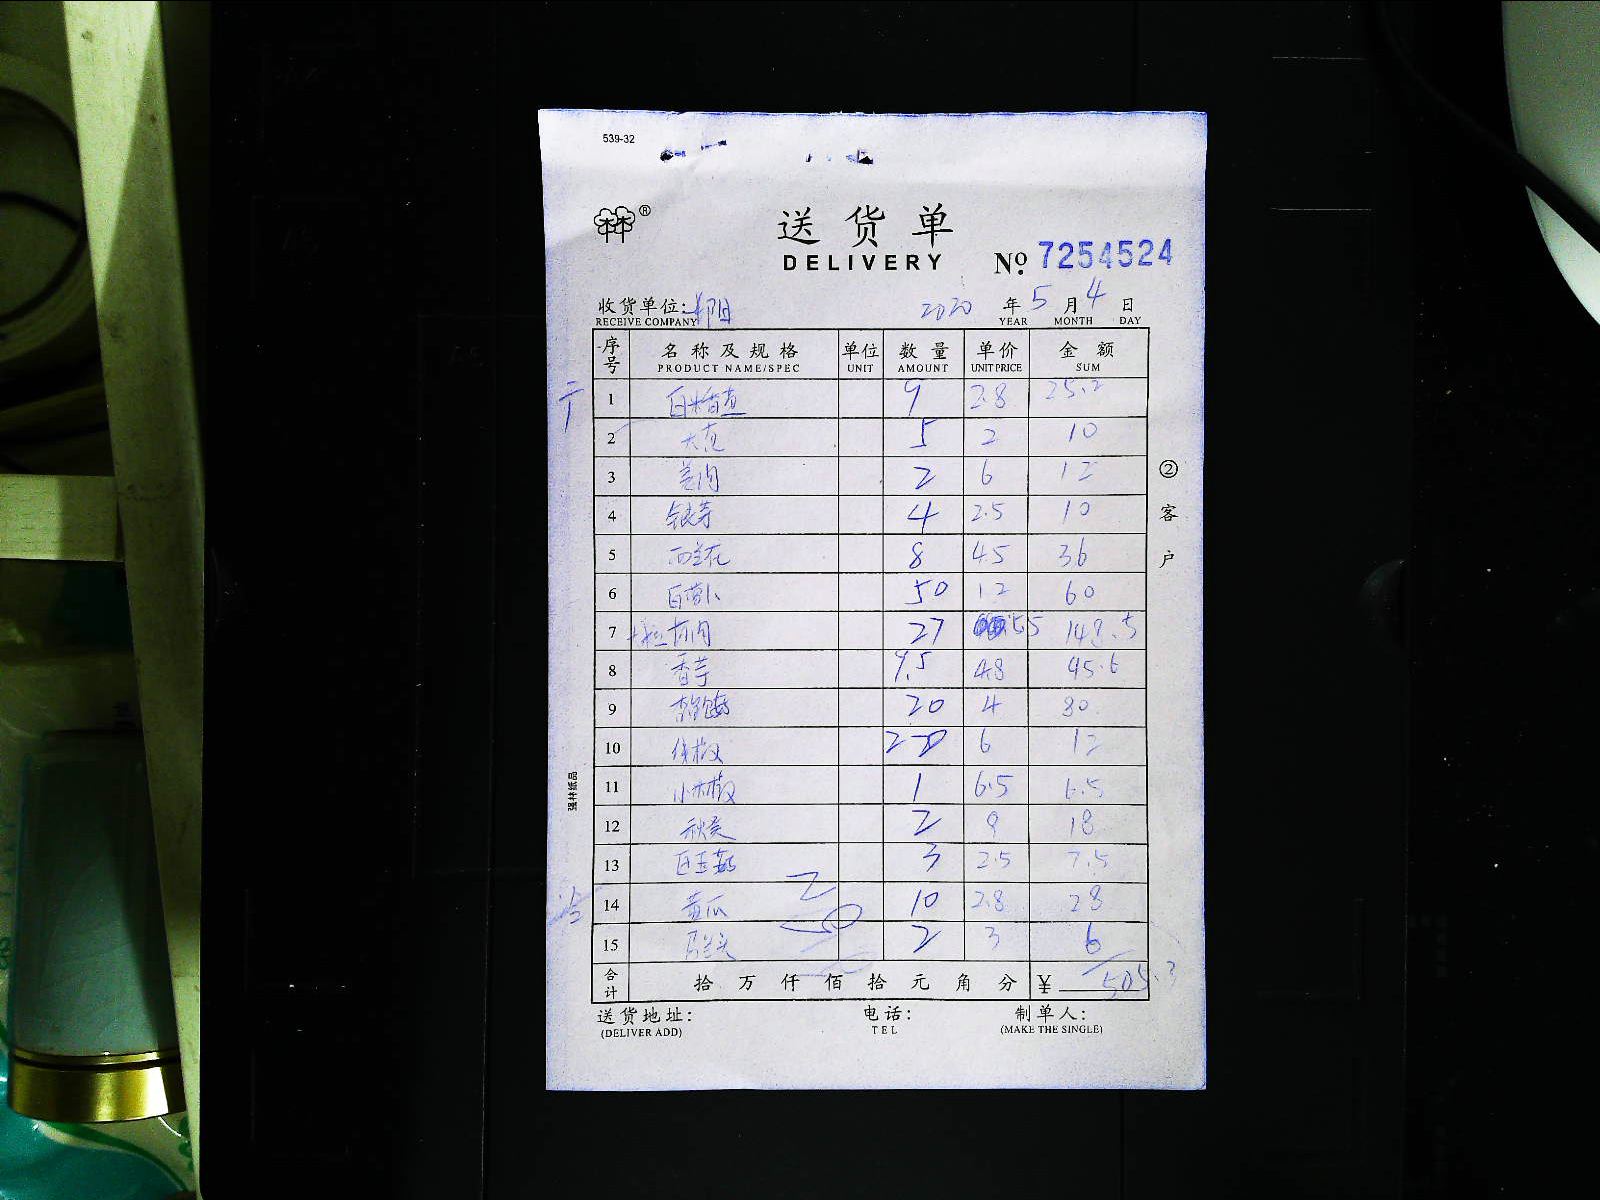 539-32
送货单
DELIVERY
№ 7254524
收货单位: 阳 2020 年 5 月 4 日
RECEIVE COMPANY YEAR MONTH DAY
序号 名称及规格 单位 数量 单价 金额
PRODUCT NAME/SPEC UNIT AMOUNT UNIT PRICE SUM
1 9 2.8 25.2
2 大 5 2 10
3 2 6 12
4 银芽 4 2.5 10
5 西兰花 8 4.5 36
6 白萝卜 50 1.2 60
7 27 5.5 148.5
8 香芋 9.5 4.8 45.6
9 20 4 80
10 2 6 12
11 小米椒 1 6.5 6.5
12 秋葵 2 9 18
13 白玉菇 3 2.5 7.5
14 黄瓜 10 2.8 28
15 马兰头 2 3 6
合计 拾 万 仟 佰 拾 元 角 分 ¥ 505.3
送货地址: 电话: 制单人:
(DELIVER ADD) TEL (MAKE THE SINGLE)
②客户
强林纸品